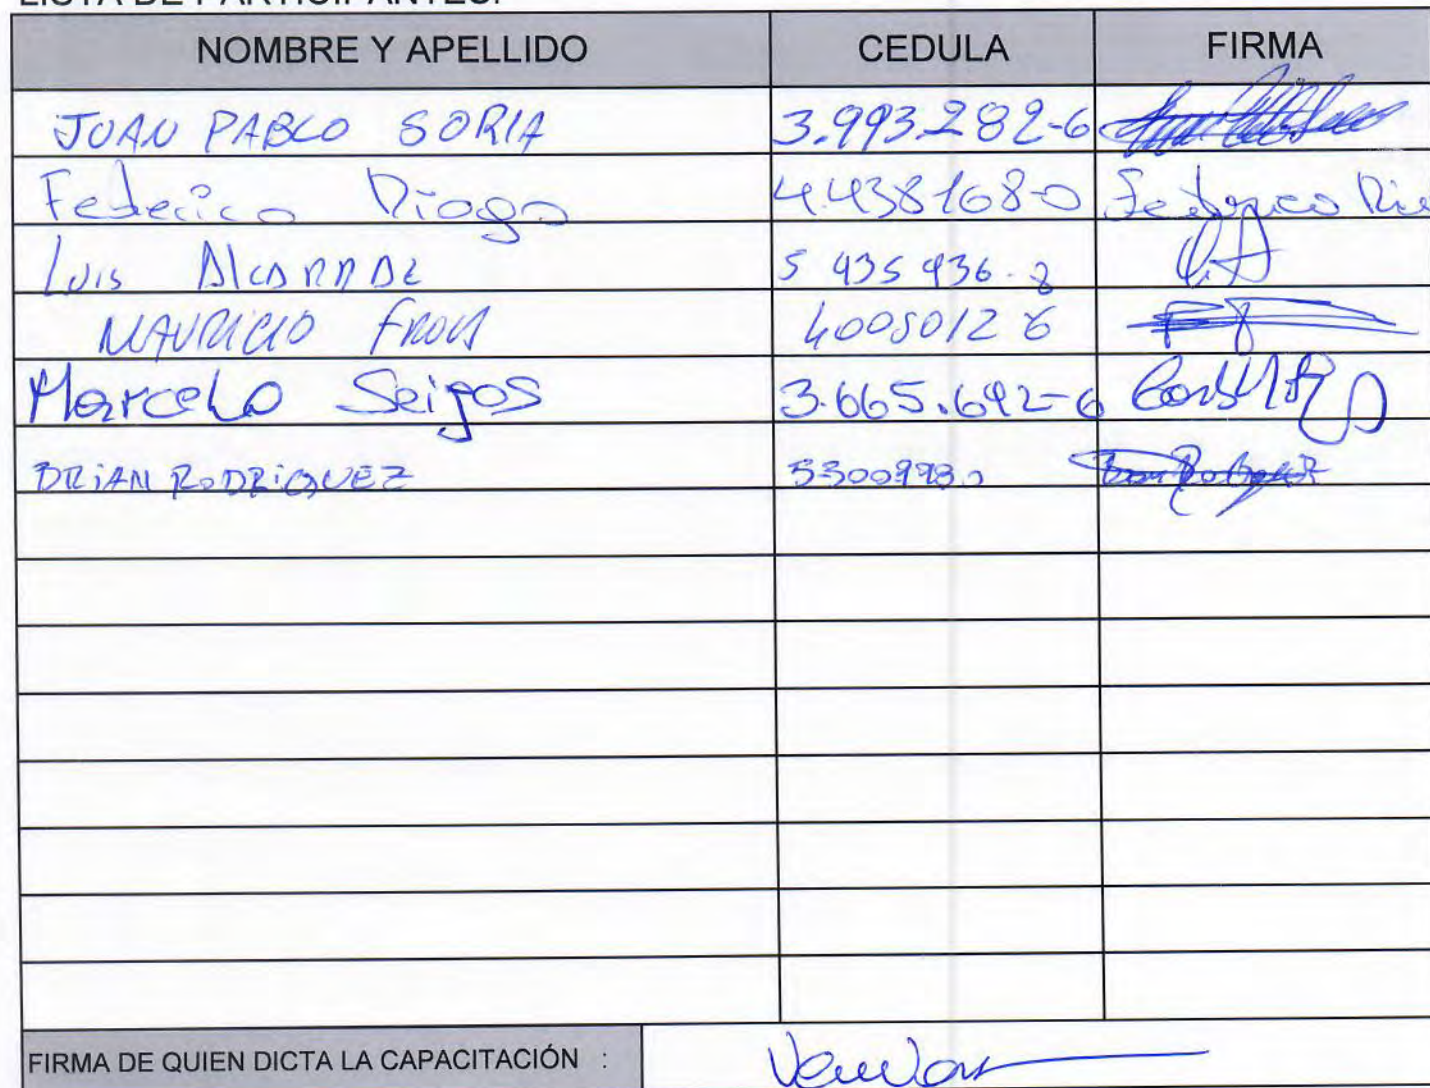 LISTA DE PARTICIPANTES:
NOMBRE Y APELLIDO CEDULA FIRMA
JUAN PABLO SORIA 3.993.282-6
Federico Diogo 4.438168-0 Federico
Luis 5 435 436-8
MAURICIO 40050126
Marcelo Seijos 3.665.692-6
BRIAN RODRIGUEZ
FIRMA DE QUIEN DICTA LA CAPACITACIÓN :